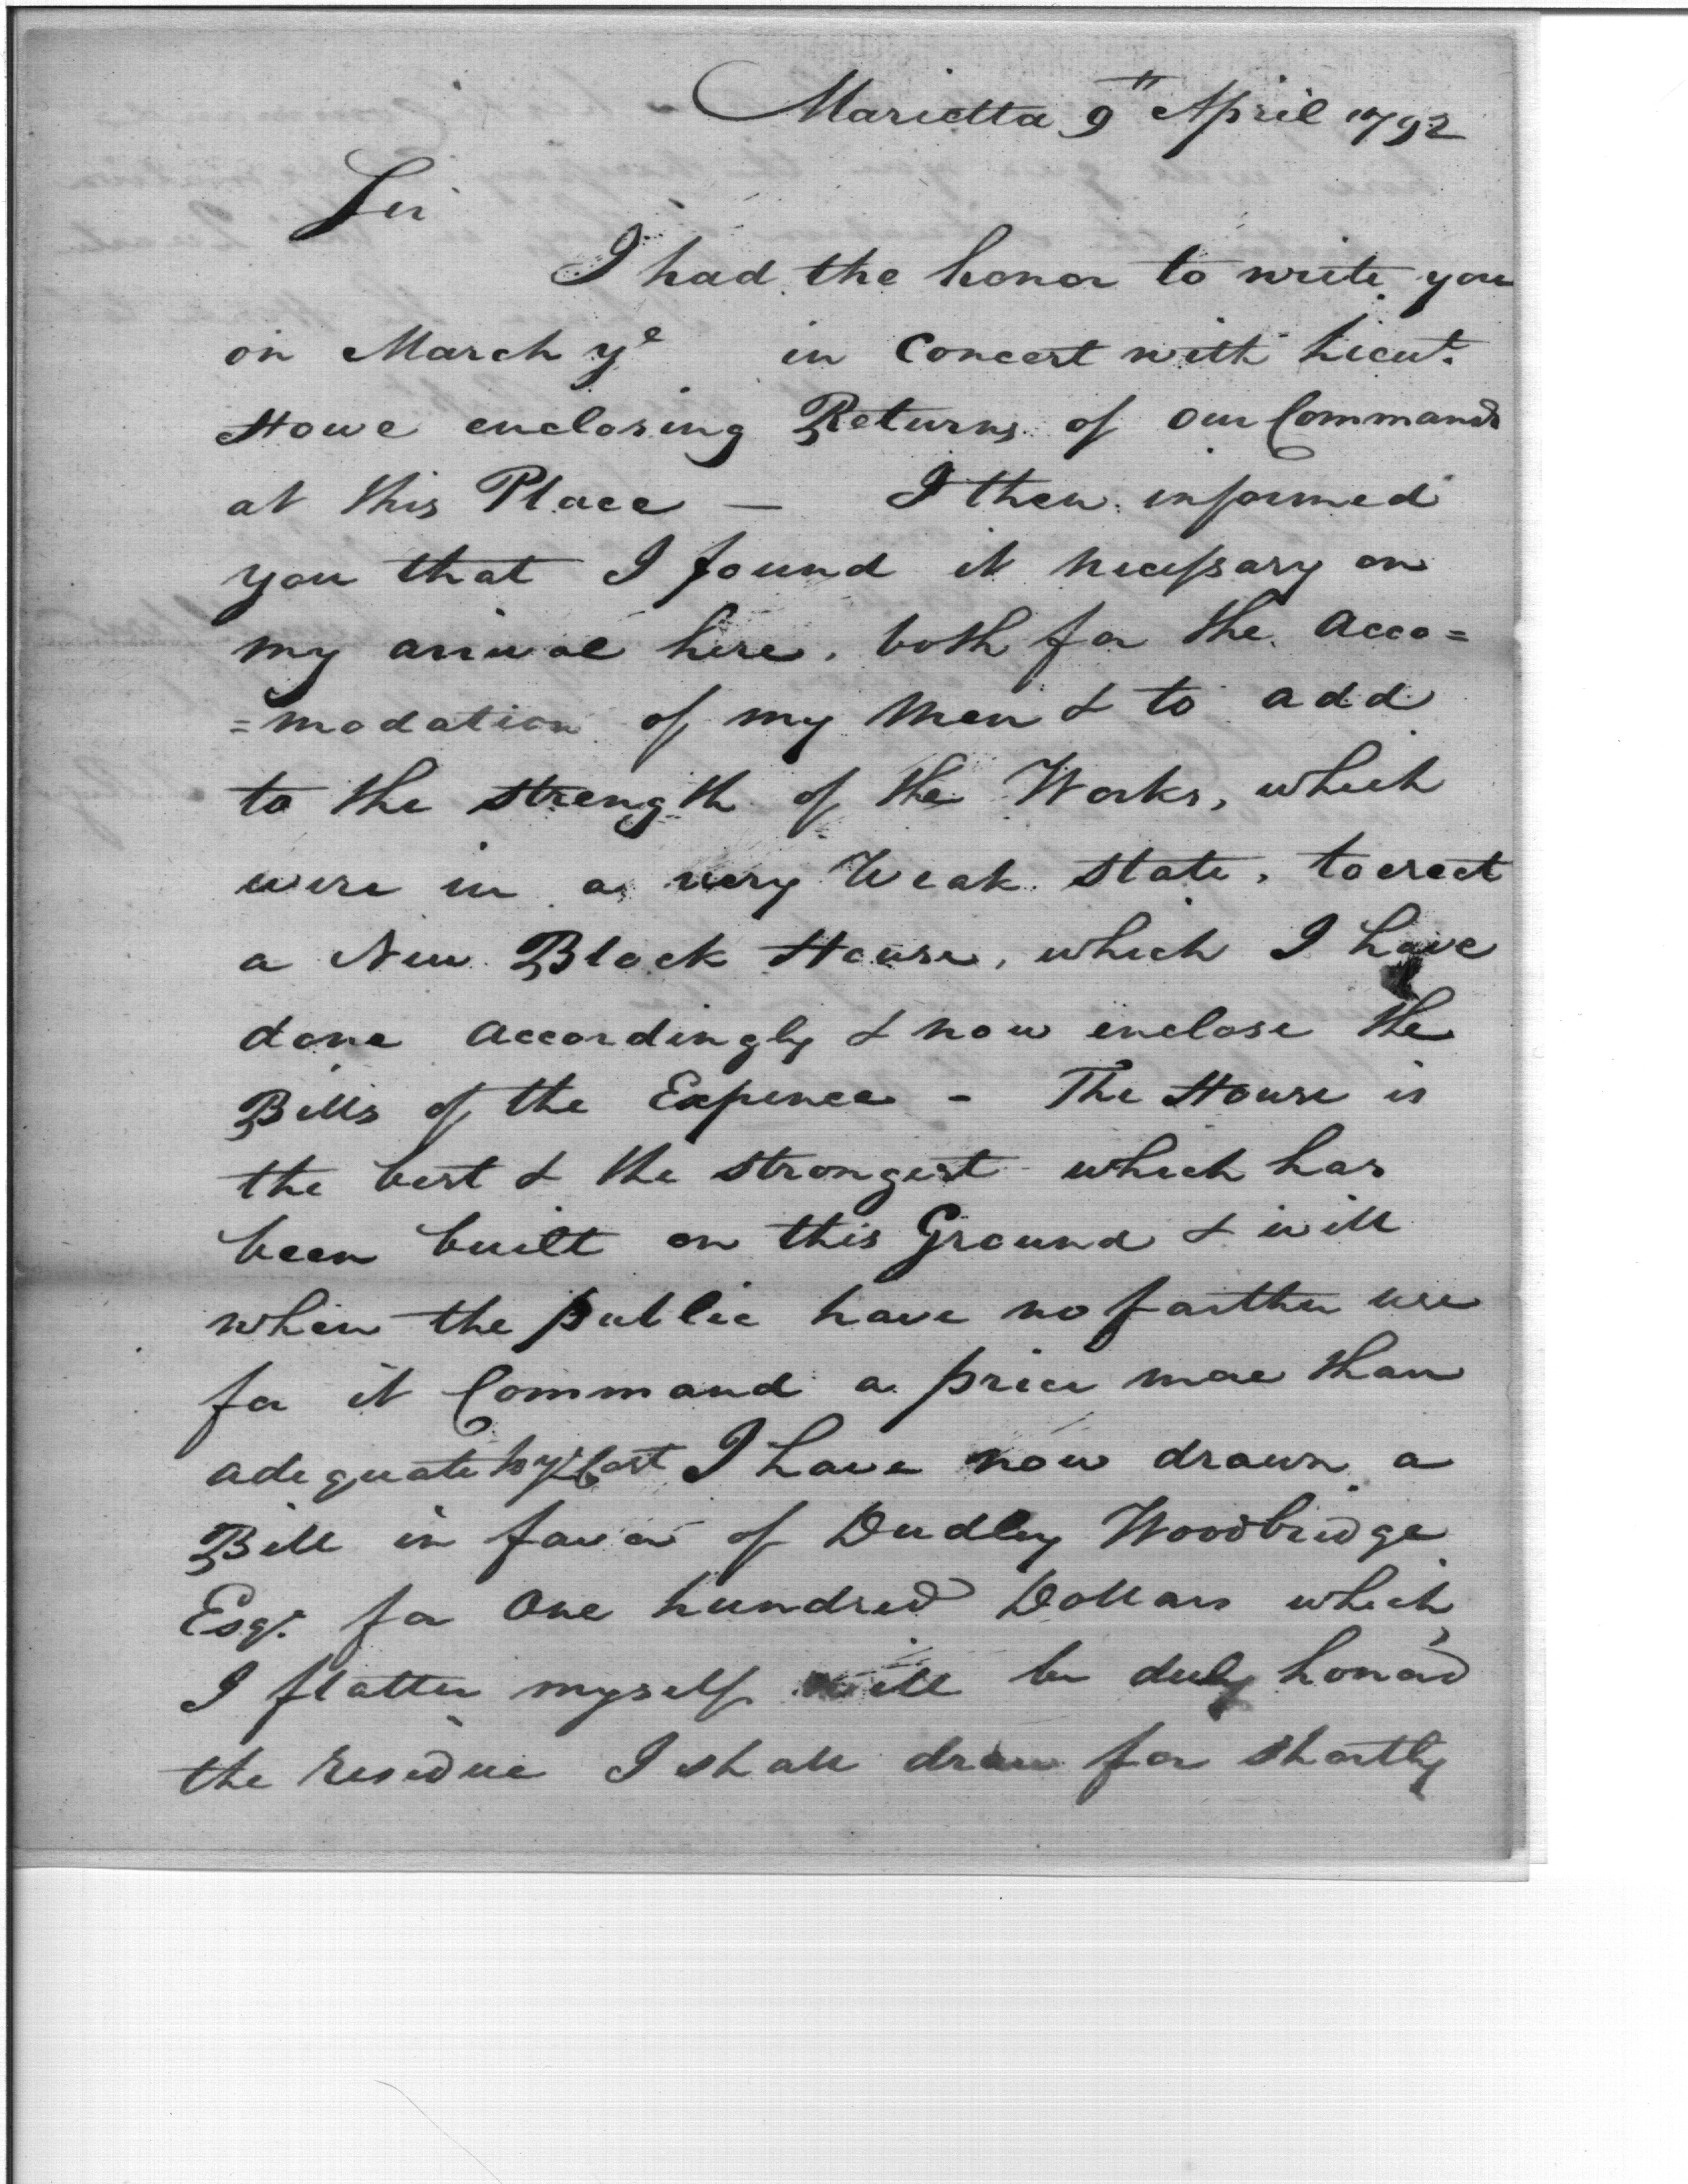 Marietta 9th April 1792
Sir
I had the honor to write you
on March ye in Concert with Lieut.
Howe enclosing Returns of our Commands
at this Place — I then informed
you that I found it necessary on
my arrival here, both for the Acco=
=modation of my Men & to add
to the strength of the Works, which
were in a very Weak state, to erect
a New Block House, which I have
done accordingly & now enclose the
Bills of the Expence - The House is
the best & the strongest which has
been built on this Ground & will
when the public have no farther use
for it Command a price more than
adequate to ye Cost I have now drawn a
Bill in favor of Dudley Woodbridge
Esqr. for One hundred Dollars which
I flatter myself will be duly honor'd
the residue I shall draw for shortly